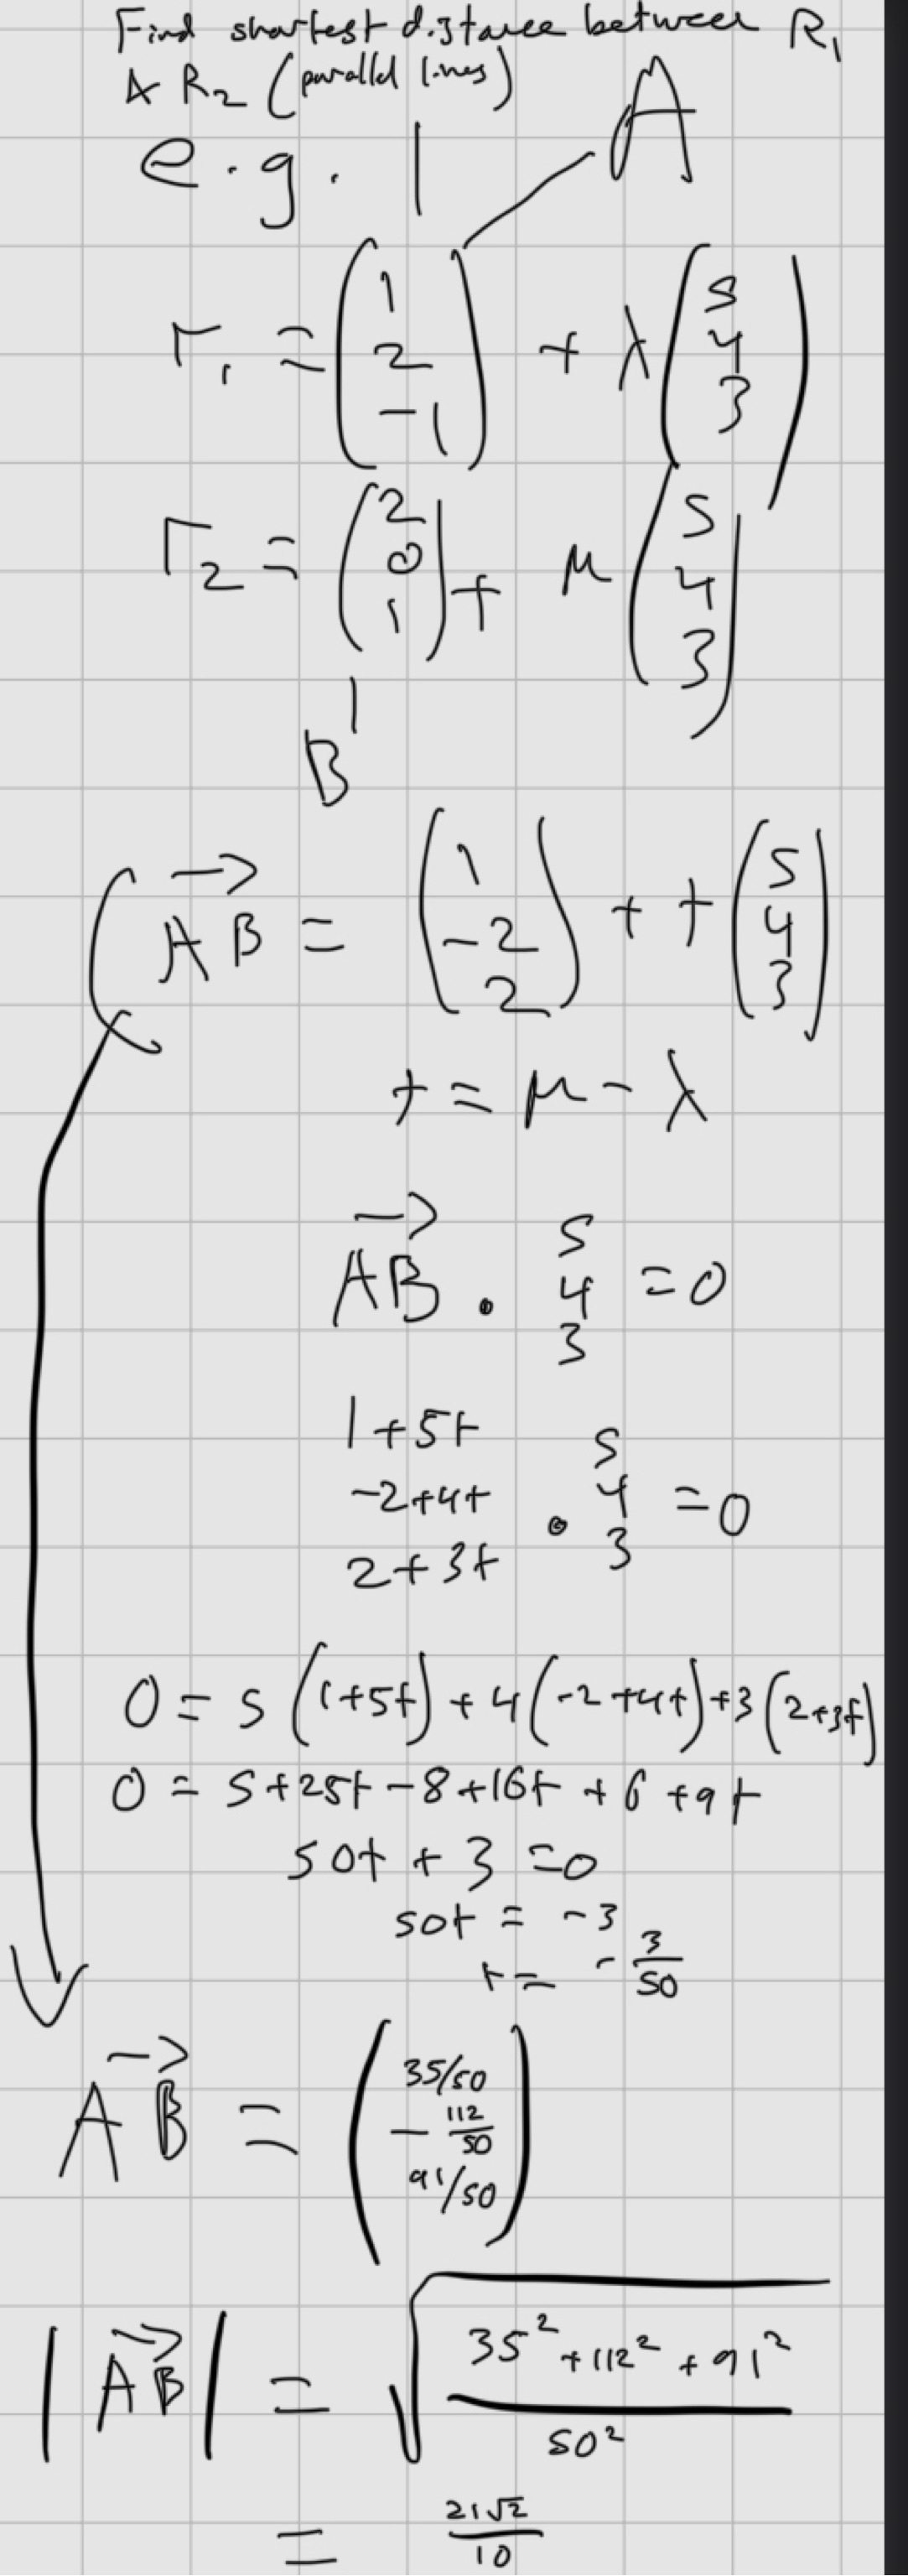 Find shortest distance between R₁
& R₂ (parallel lines)
e.g. 1 A
r₁ = (1 2 -1) + λ(5 4 3)
r₂ = (2 0 1) + μ(5 4 3)
B
AB = (1 -2 2) + t(5 4 3)
t = μ - λ
AB · 5 4 3 = 0
1+5t
-2+4t · 5 4 3 = 0
2+3t
0 = 5(1+5t) + 4(-2+4t) + 3(2+3t)
0 = 5+25t-8+16t+6+9t
50t + 3 = 0
50t = -3
t = -3/50
AB = (35/50 -112/50 91/50)
|AB| = √((35²+112²+91²)/50²)
= 21√2/10